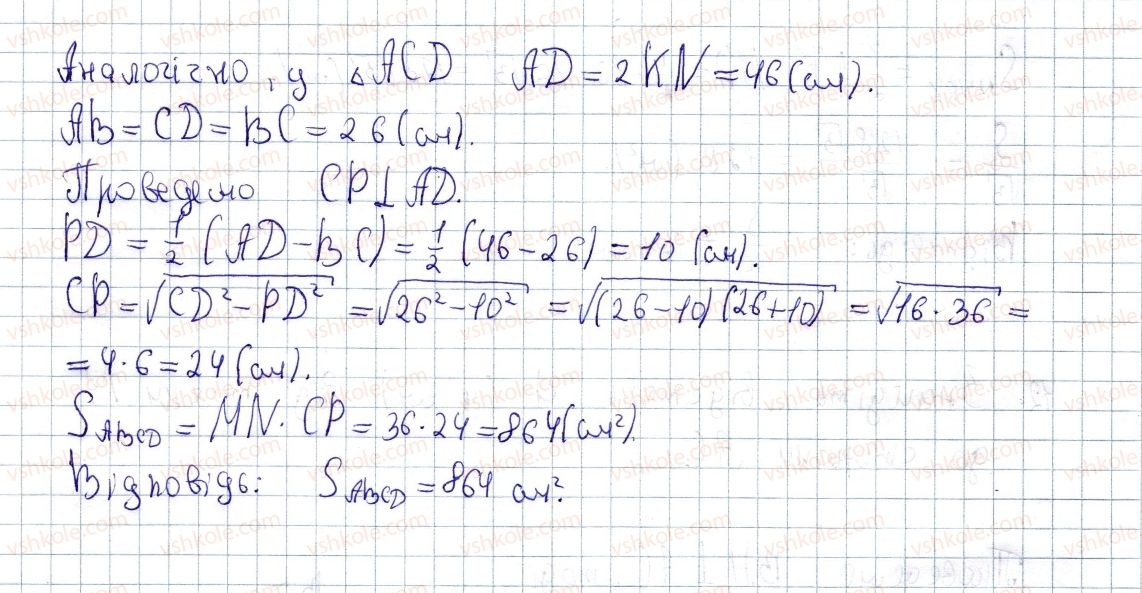 Аналогічно, у △ACD AD = 2KN = 46 (см).
AB = CD = BC = 26 (см).
Проведемо CP⊥AD.
PD = 1/2 (AD − BC) = 1/2 (46 − 26) = 10 (см).
CP = √(CD² − PD²) = √(26² − 10²) = √((26−10)(26+10)) = √(16·36) =
= 4·6 = 24 (см).
S_ABCD = MN · CP = 36·24 = 864 (см²).
Відповідь: S_ABCD = 864 см².